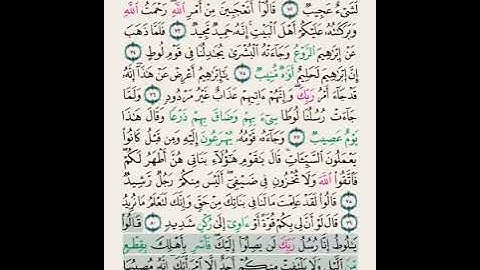 لَشَىْءٌ عَجِيبٌ ۝٧٢ قَالُوٓا۟ أَتَعْجَبِينَ مِنْ أَمْرِ ٱللَّهِ ۖ رَحْمَتُ ٱللَّهِ
وَبَرَكَٰتُهُۥ عَلَيْكُمْ أَهْلَ ٱلْبَيْتِ ۚ إِنَّهُۥ حَمِيدٌ مَّجِيدٌ ۝٧٣ فَلَمَّا ذَهَبَ
عَنْ إِبْرَٰهِيمَ ٱلرَّوْعُ وَجَآءَتْهُ ٱلْبُشْرَىٰ يُجَٰدِلُنَا فِى قَوْمِ لُوطٍ ۝٧٤
إِنَّ إِبْرَٰهِيمَ لَحَلِيمٌ أَوَّٰهٌ مُّنِيبٌ ۝٧٥ يَٰٓإِبْرَٰهِيمُ أَعْرِضْ عَنْ هَٰذَآ ۖ إِنَّهُۥ
قَدْ جَآءَ أَمْرُ رَبِّكَ ۖ وَإِنَّهُمْ ءَاتِيهِمْ عَذَابٌ غَيْرُ مَرْدُودٍ ۝٧٦ وَلَمَّا
جَآءَتْ رُسُلُنَا لُوطًا سِىٓءَ بِهِمْ وَضَاقَ بِهِمْ ذَرْعًا وَقَالَ هَٰذَا
يَوْمٌ عَصِيبٌ ۝٧٧ وَجَآءَهُۥ قَوْمُهُۥ يُهْرَعُونَ إِلَيْهِ وَمِن قَبْلُ كَانُوا۟
يَعْمَلُونَ ٱلسَّيِّـَٔاتِ ۚ قَالَ يَٰقَوْمِ هَٰٓؤُلَآءِ بَنَاتِى هُنَّ أَطْهَرُ لَكُمْ ۖ
فَٱتَّقُوا۟ ٱللَّهَ وَلَا تُخْزُونِ فِى ضَيْفِىٓ ۖ أَلَيْسَ مِنكُمْ رَجُلٌ رَّشِيدٌ
۝٧٨ قَالُوا۟ لَقَدْ عَلِمْتَ مَا لَنَا فِى بَنَاتِكَ مِنْ حَقٍّ وَإِنَّكَ لَتَعْلَمُ مَا نُرِيدُ
۝٧٩ قَالَ لَوْ أَنَّ لِى بِكُمْ قُوَّةً أَوْ ءَاوِىٓ إِلَىٰ رُكْنٍ شَدِيدٍ ۝٨٠ قَالُوا۟
يَٰلُوطُ إِنَّا رُسُلُ رَبِّكَ لَن يَصِلُوٓا۟ إِلَيْكَ ۖ فَأَسْرِ بِأَهْلِكَ بِقِطْعٍ
مِّنَ ٱلَّيْلِ وَلَا يَلْتَفِتْ مِنكُمْ أَحَدٌ إِلَّا ٱمْرَأَتَكَ ۖ إِنَّهُۥ مُصِيبُهَا